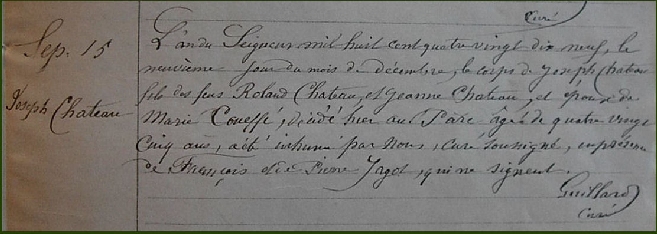 Curé
Sep. 15
Joseph Chateau
L'an du Seigneur mil huit cent quatre vingt dix neuf, le
neuvième jour du mois de décembre, le corps de Joseph Chateau
fils des feus Roland Chateau, et Jeanne Chateau, et époux de
Marie Coueffe, décédé hier au Parc agé de quatre vingt
Cinq ans, a été inhumé par Nous, curé soussigné, en présence
de François et de Pierre Jagot, qui ne signent.
Guillard
Curé